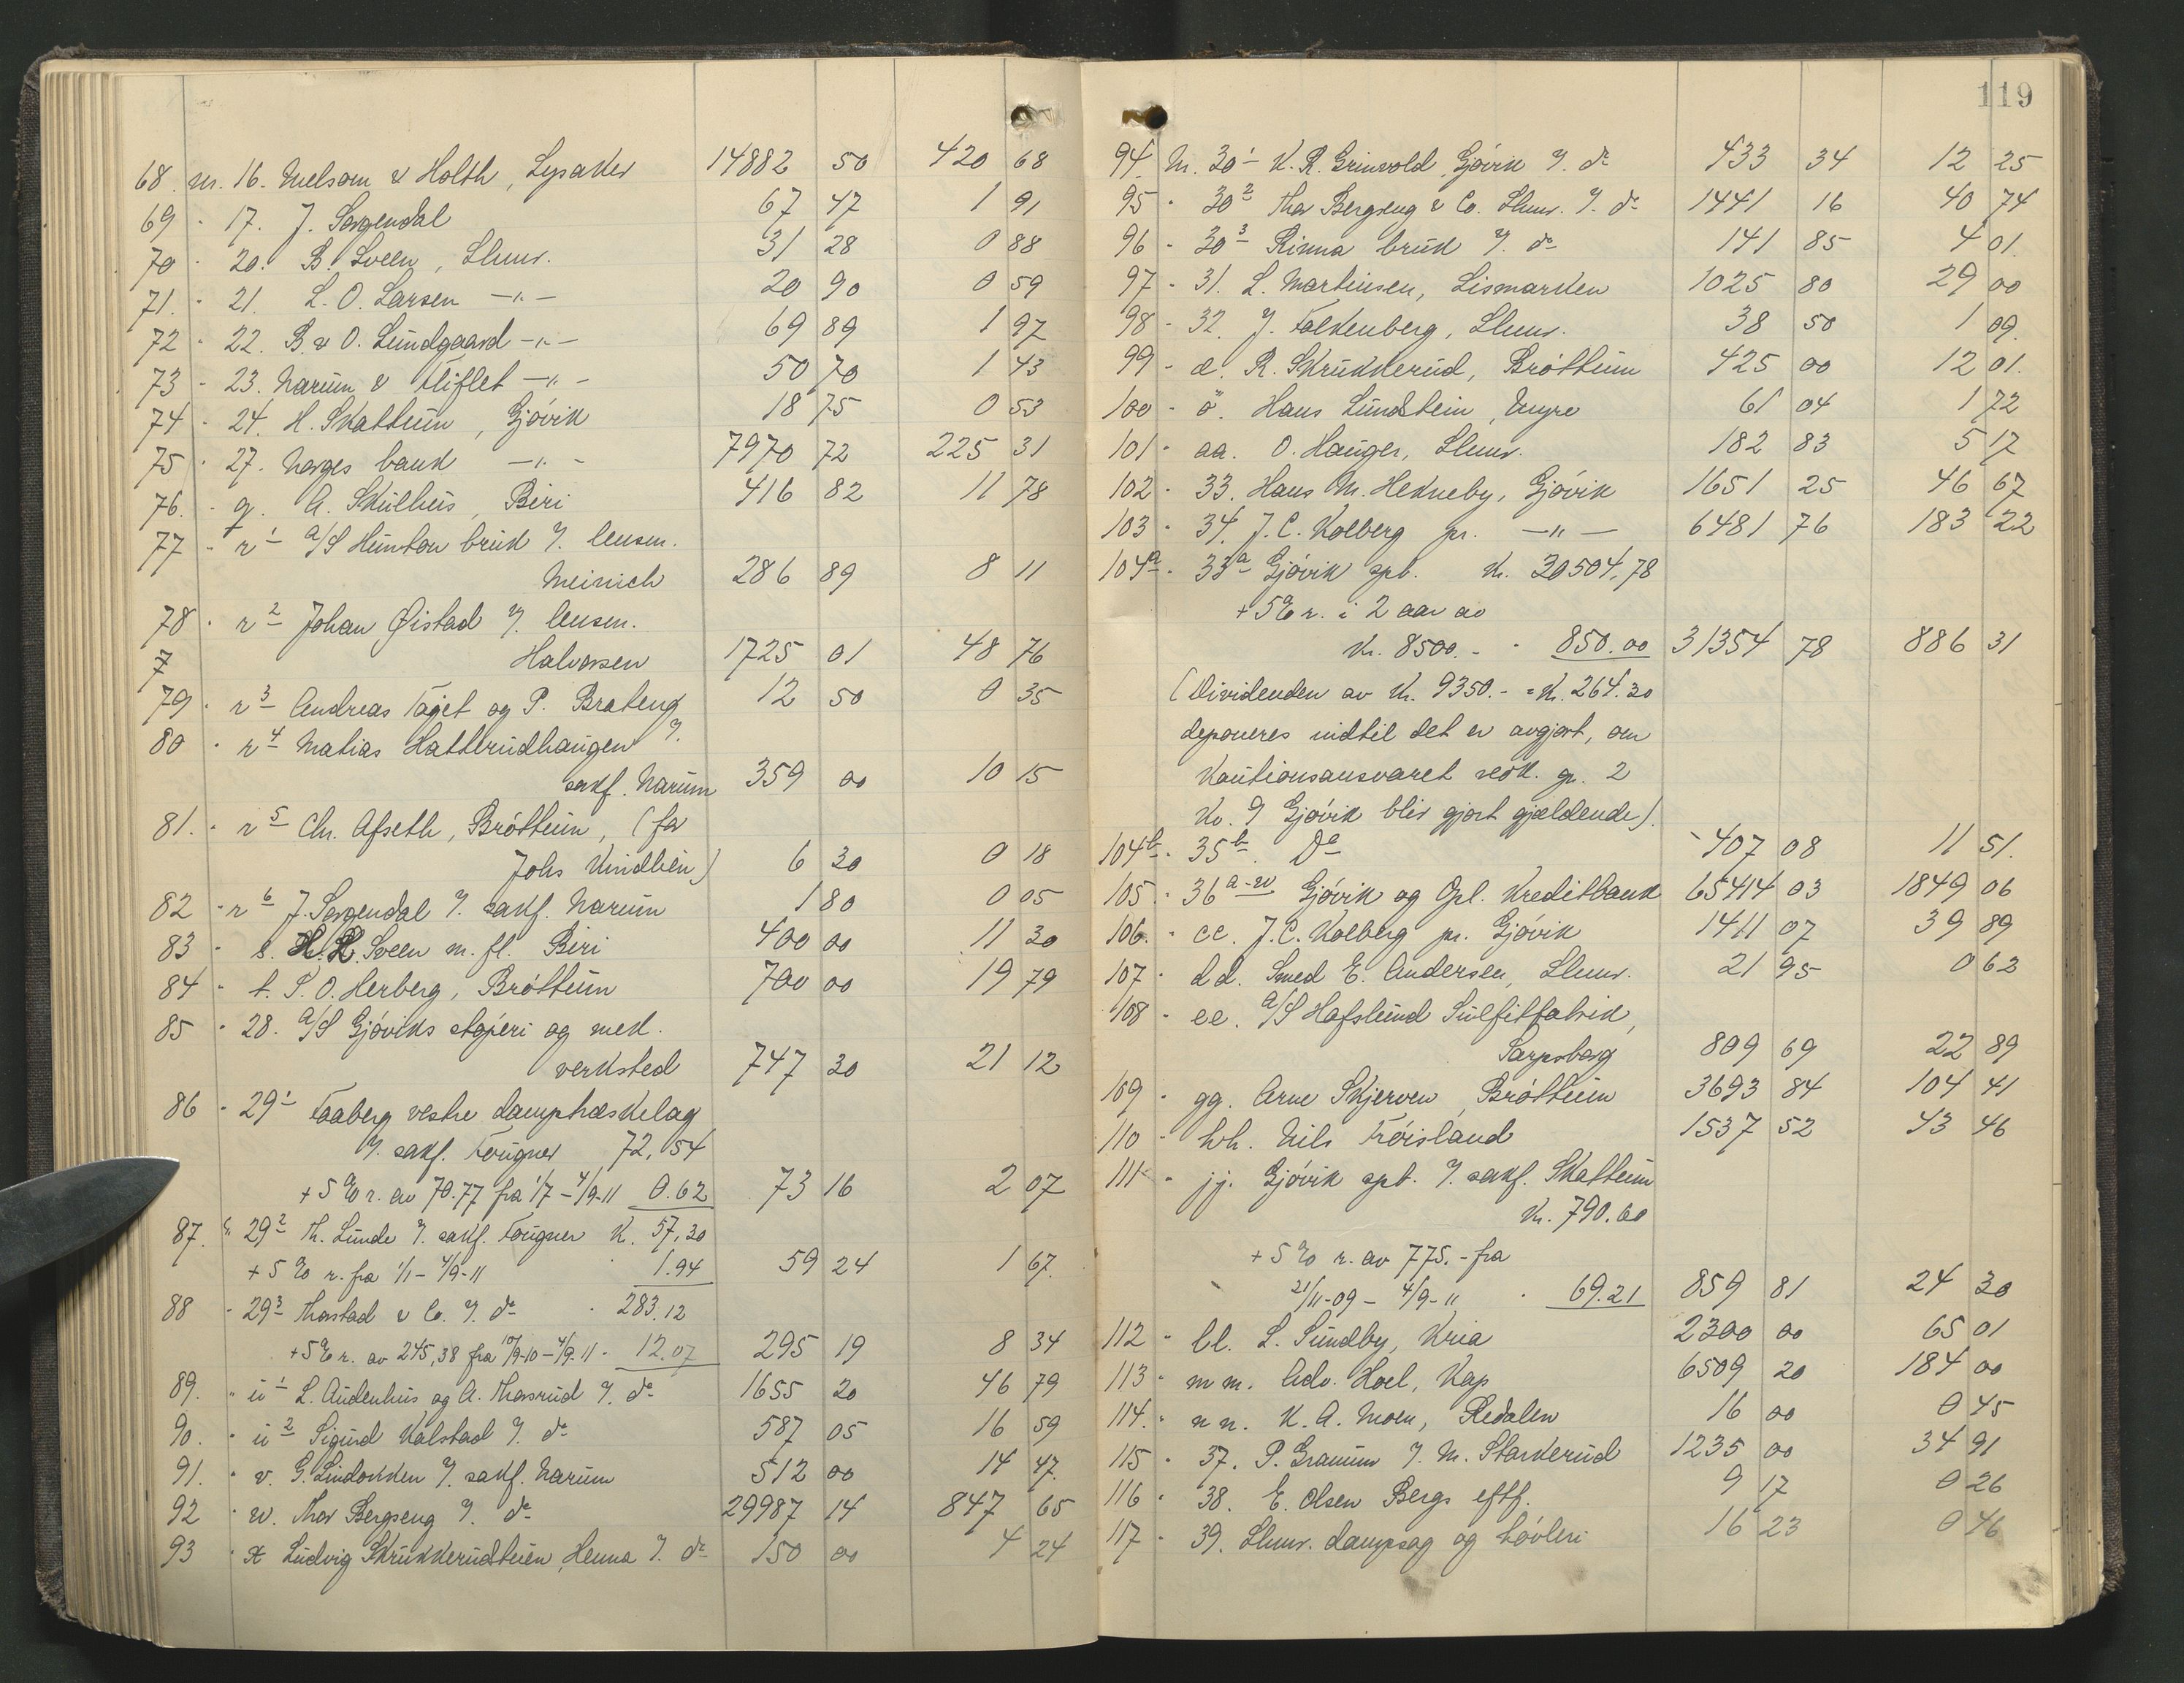 68. m. 16. Melsom & Holth, Lysaker 14882 50 420 68
69 - 17. J. Sorgendal 67 47 1 91
70 - 20. B. Sveen, Lhmr. 31 28 0 88
71. - 21. L. O. Larsen —"— 20 90 0 59
72 - 22. B. & O. Lundgaard —"— 69 89 1 97
73 - 23. Narum & Fliflet —"— 50 70 1 43
74 - 24. H. Skattum, Gjövik 18 75 0 53
75 - 27. Norges bank —"— 7970 72 225 31
76. - q. A. Skulhus, Biri 416 82 11 78
77 - r 1 A/S Hunton bruk v. lensm.
Meinich 286 89 8 11
78 - r 2 Johan Øistad v. lensm.
7 Halvorsen 1725 01 48 76
79 - r 3 Andreas Taget og P. Brateng 12 50 0 35
80 - r 4 Matias Hatterudhaugen v.
sakf. Narum 359 00 10 15
81. - r 5 Chr. Afseth, Bröttum, (for
Johs Kindlien) 6 30 0 18
82 - r 6 J. Sorgendal v. sakf. Narum 1 80 0 05
83 - s. H. R. Sveen m. fl. Biri 400 00 11 30
84 - t. P. O. Herberg, Bröttum 700 00 19 79
85 - 28. A/S Gjöviks støperi og mek.
verksted 747 30 21 12
86 - 29 1 Faaberg vestre damptræskelag
v. sakf. Fougner 72,54
+ 5 % r. av 70.77 fra 1/7 - 4/9-11 0.62 73 16 2 07
87. " 29 2 Th. Lunde v. sakf. Fougner K. 57,30
+ 5 % r. fra 1/1 - 4/9-11 1.94 59 24 1 67
88 - 29 3 Thorstad & Co. v. do - 283.12
+ 5 % r. av 245,38 fra 10/9-10 - 4/9-11 - 12.07 295 19 8 34
89. - u 1 L. Audenhus og A. Thorsrud v. do 1655 20 46 79
90. - u 2 Sigurd Kalstad v. do 587 05 16 59
91. - v. G. Lindokken v. sakf. Narum 512 00 14 47
92 - w. Thor Bergseng v. do 29987 14 847 65
93 - x Ludvig Skrukkerudstuen, Henna v. do 150 00 4 24
119
94. m. 30 1 K. R. Grinvold, Gjövik v. do 433 34 12 25
95 - 30 2 Thor Bergseng & Co. Lhmr. v. do 1441 16 40 74
96 - 30 3 Rinna bruk v. do 141 85 4 01.
97 - 31. L. Martinsen, Lismarken 1025 80 29 00
98 - 32. J. Falkenberg, Lhmr. 38 50 1 09.
99 - æ. R. Skrukkerud, Bröttum 425 00 12 01.
100 - ö. Haus Lundstein, Myre 61 04 1 72
101 - aa. O. Hauger, Lhmr. 182 83 5 17
102 - 33. Hans M. Hekneby, Gjövik 1651 25 46 67
103 - 34. J. C. Kolberg pr. —"— 6481 76 183 22
104a - 35a Gjövik spb. Kr. 30504,78
+ 5 % r. i 2 aar av
Kr. 8500. - - 850.00 31354 78 886 31
(Dividenden av Kr. 9350.- = Kr. 264.30
deponeres indtil det er avgjort, om
Kautionsansvaret vedk. gr. 2
Kv. 9 Gjövik blir gjort gjældende).
104b - 35b. Do - 407 08 11 51.
105 - 36 a-w Gjövik og Opl. Kreditbank 65414 03 1849 06
106. - cc. J. C. Kolberg pr. Gjövik 1411 07 39 89
107 - dd. Smed E. Andersen, Lhmr. 21 95 0 62
108 - ee. A/S Hafslund Sulfitfabrik,
Sarpsborg 809 69 22 89
109 - gg. Arne Skjerven, Bröttum 3693 84 104 41
110 - hh. Nils Fröisland 1537 52 43 46
111 - jj. Gjövik spb. v. sakf. Skattum
Kr. 790.60
+ 5 % r. av 775.- fra
21/11-09 - 4/9-11 - 69.21 859 81 24 30
112 - ll. L. Sundby, Kria 2300 00 65 01
113 - mm. Adv. Hoel, Kap 6509 20 184 00
114. - nn. K. A. Moen, Redalen 16 00 0 45
115 - 37. P. Granum v. M. Starkerud 1235 00 34 91
116 - 38. E. Olsen Bergs eftf. 9 17 0 26
117 - 39. Lhmr. dampsag og hövleri 16 23 0 46